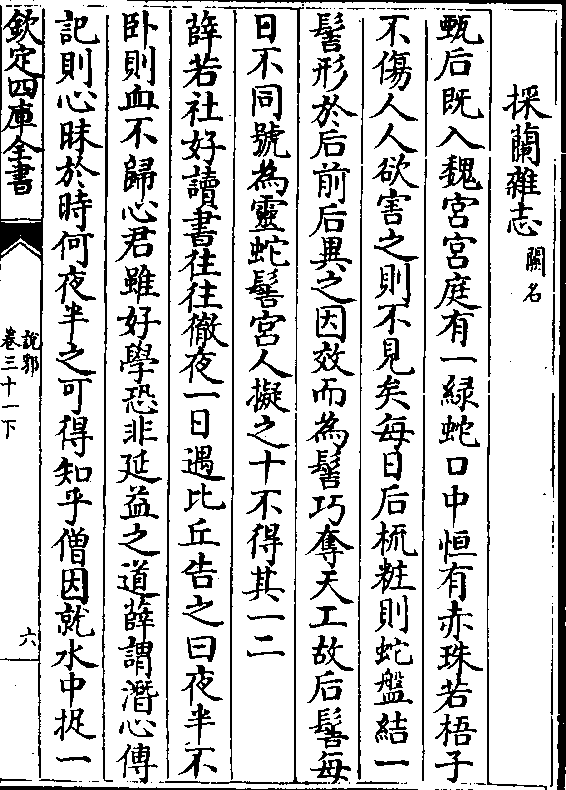 採蘭雜志闕名
甄后既入魏宮宮庭有一緑蛇口中恒有赤珠若梧子
不傷人人欲害之則不見矣每日后梳粧則蛇盤結一
髻形於后前后異之因效而為髻巧奪天工故后髻每
日不同號為靈蛇髻宮人擬之十不得其一二
薛若社好讀書往往徹夜一日遇比丘告之曰夜半不
卧則血不歸心君雖好學恐非延益之道薛謂潛心傳
記則心昧於時何夜半之可得知乎僧因就水中捉一
欽定四庫全書
說郛
卷三十一下
六